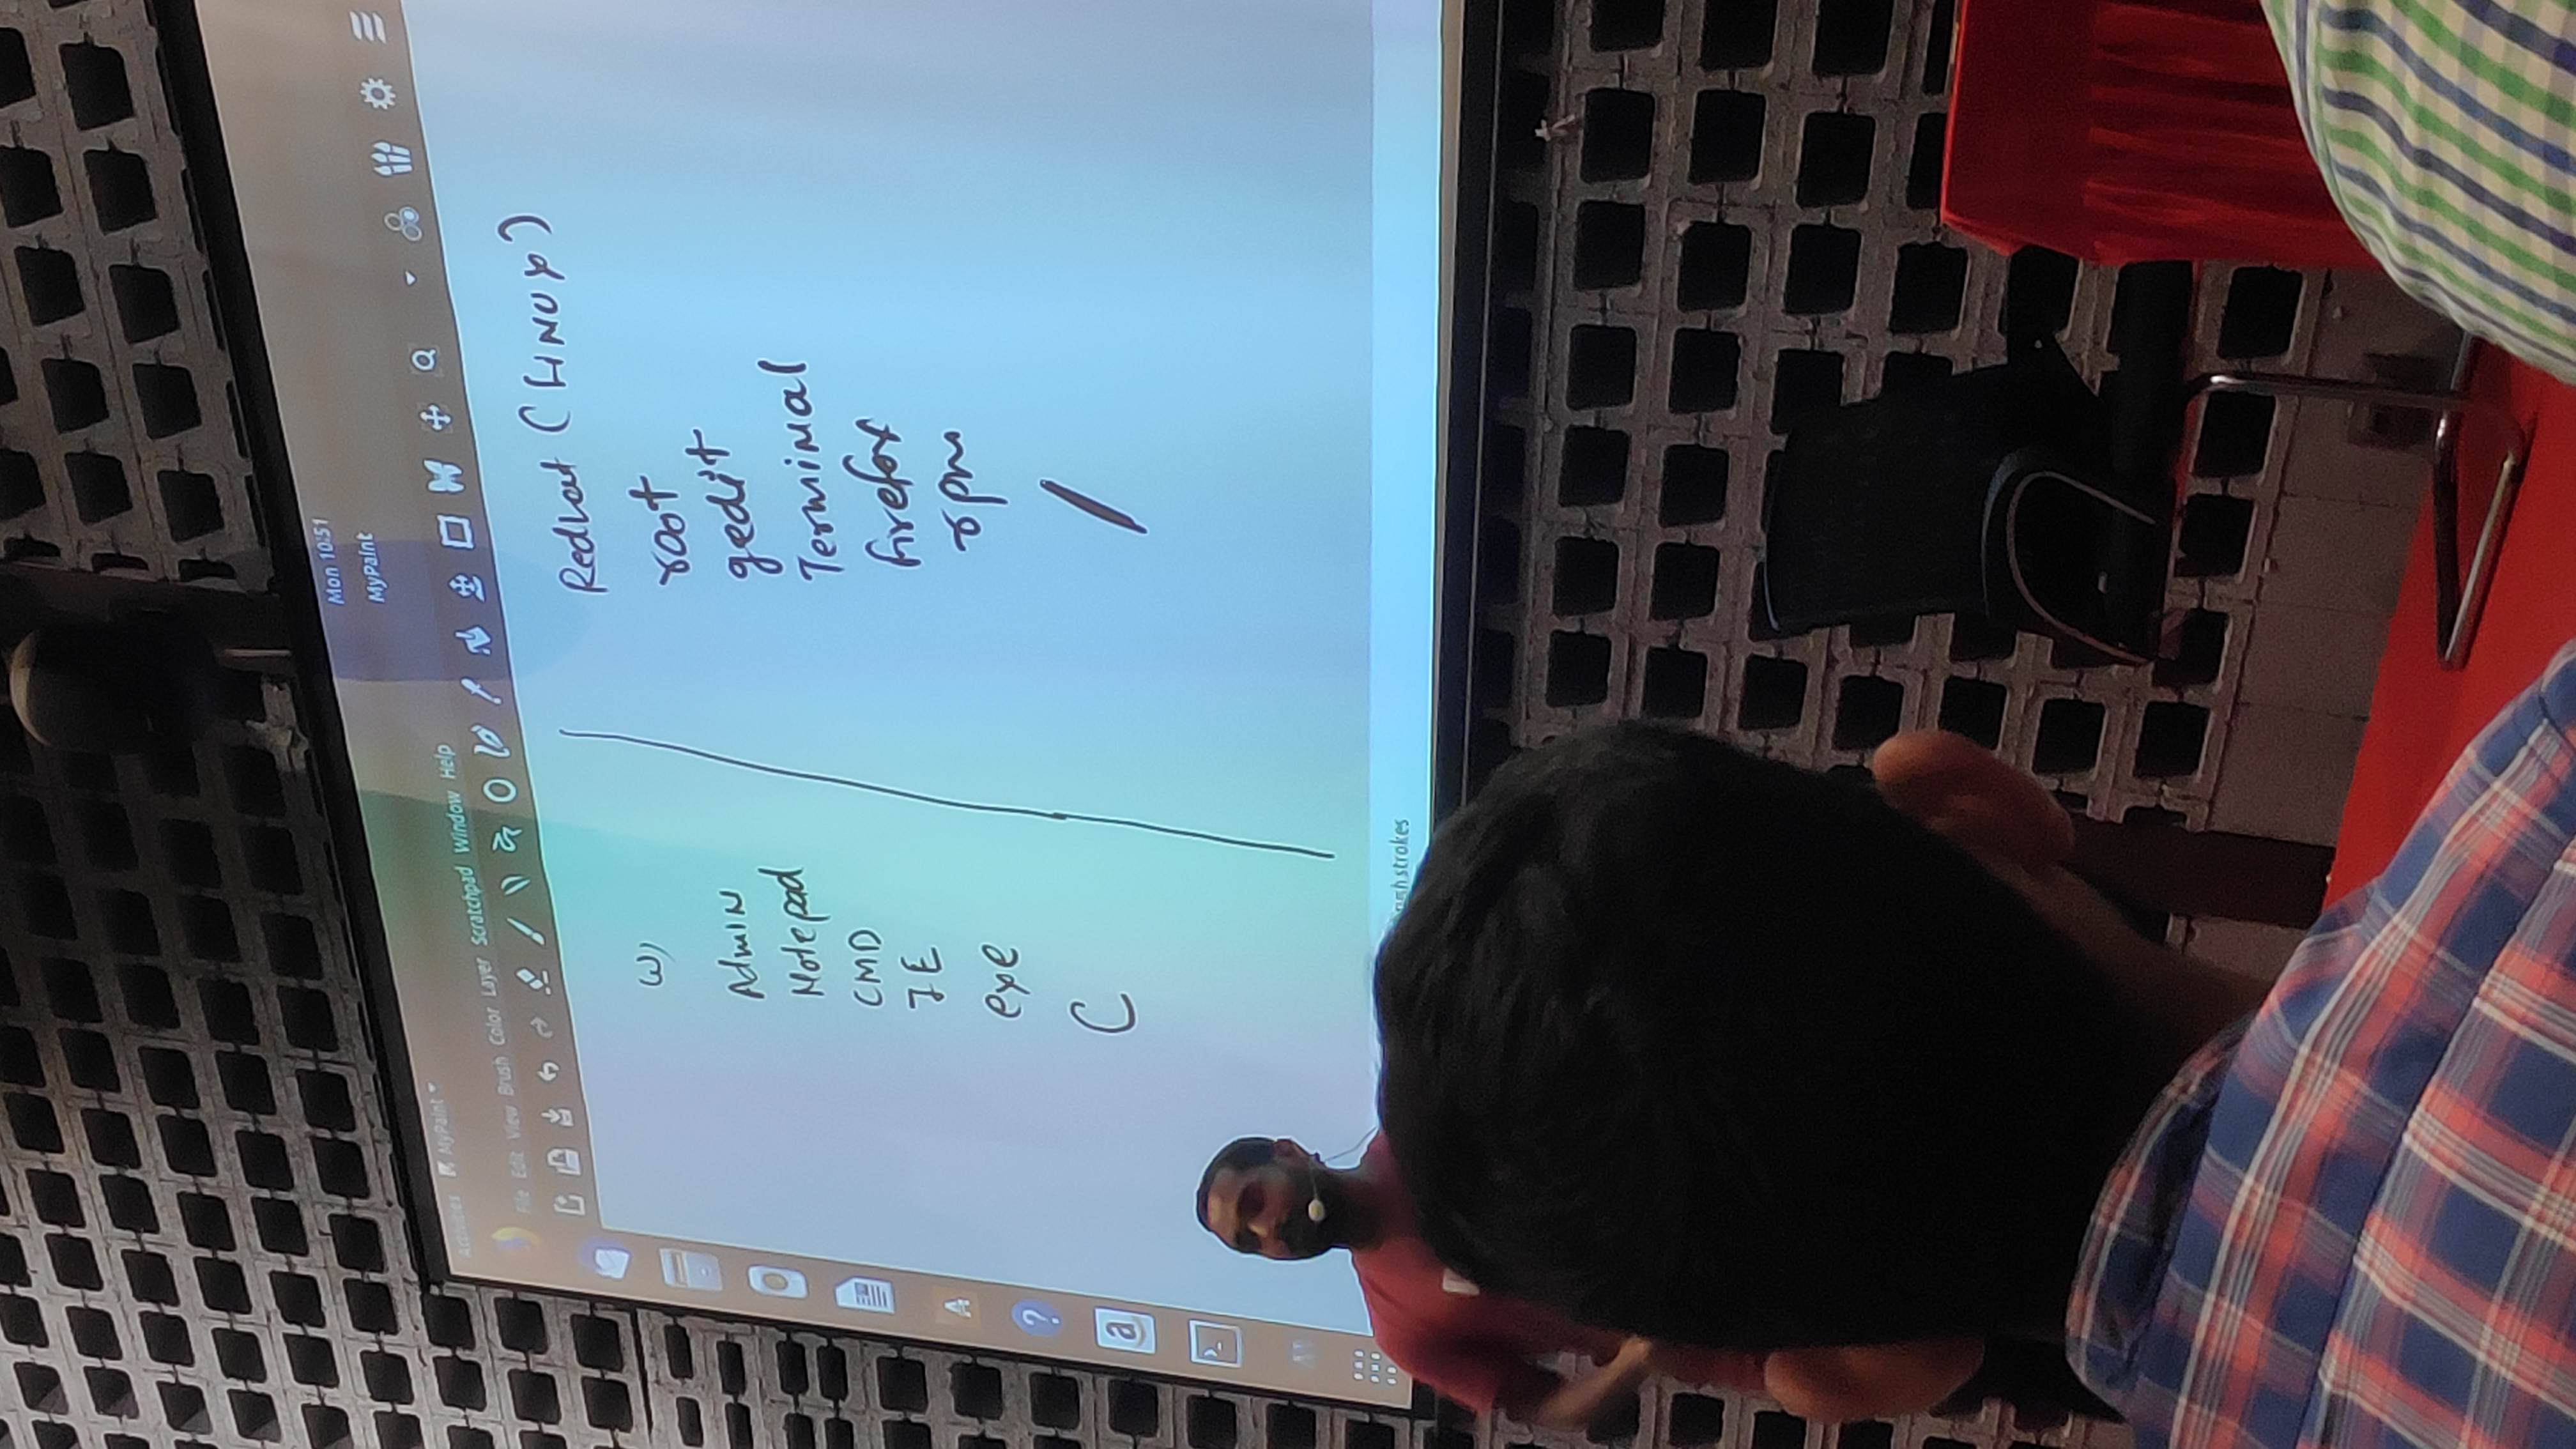 Mon 10:51
Activities MyPaint
MyPaint
File Edit View Brush Color Layer Scratchpad Window Help
W)
Admin
Notepad
CMD
IE
exe
C
Redhat (LINUX)
root
gedit
Terminal
firefox
rpm
/
strokes